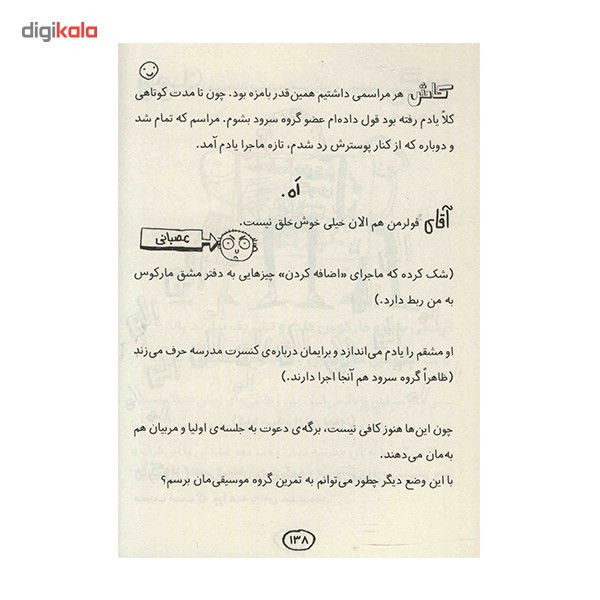 digikala
کاش هر مراسمی داشتیم همین‌قدر بامزه بود. چون تا مدت کوتاهی
کلاً یادم رفته بود قول داده‌ام عضو گروه سرود بشوم. مراسم که تمام شد
و دوباره که از کنار پوسترش رد شدم، تازه ماجرا یادم آمد.
اَه.
آقای فولرمن هم الان خیلی خوش‌خلق نیست.
عصبانی
(شک کرده که ماجرای «اضافه کردن» چیزهایی به دفتر مشق مارکوس
به من ربط دارد.)
او مشقم را یادم می‌اندازد و برایمان درباره‌ی کنسرت مدرسه حرف می‌زند
(ظاهراً گروه سرود هم آنجا اجرا دارند.)
چون این‌ها هنوز کافی نیست، برگه‌ی دعوت به جلسه‌ی اولیا و مربیان هم
به‌مان می‌دهند.
با این وضع دیگر چطور می‌توانم به تمرین گروه موسیقی‌مان برسم؟
۱۳۸